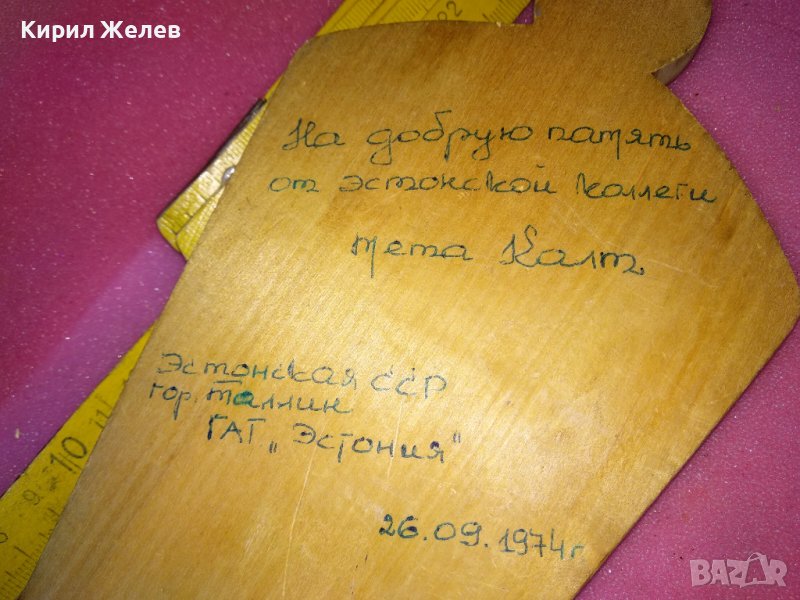 Кирил Желев
На добрую память
от эстонской коллеги
Мета Калт
Эстонская ССР
гор. Таллин
ГАТ „Эстония"
26.09.1974г
9 10 11
02
BAZAR